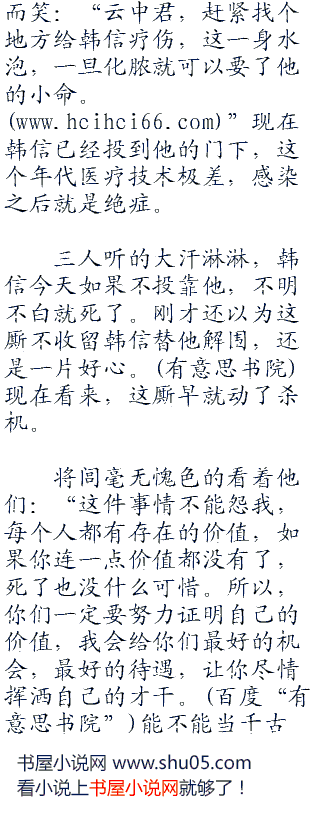 而笑：“云中君，赶紧找个
地方给韩信疗伤，这一身水
泡，一旦化脓就可以要了他
的小命。
(www.hcihci66.com)”现在
韩信已经投到他的门下，这
个年代医疗技术极差，感染
之后就是绝症。
三人听的大汗淋淋，韩
信今天如果不投靠他，不明
不白就死了。刚才还以为这
厮不收留韩信替他解围，还
是一片好心。(有意思书院)
现在看来，这厮早就动了杀
机。
将闾毫无愧色的看着他
们：“这件事情不能怨我，
每个人都有存在的价值，如
果你连一点价值都没有了，
死了也没什么可惜。所以，
你们一定要努力证明自己的
价值，我会给你们最好的机
会，最好的待遇，让你尽情
挥洒自己的才干。(百度“有
意思书院”)能不能当千古
书屋小说网 www.shu05.com
看小说上书屋小说网就够了！